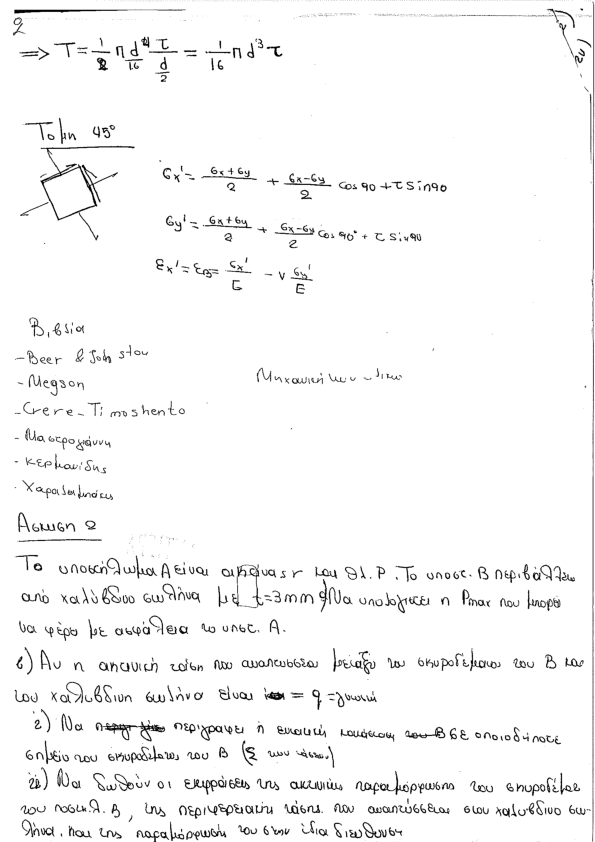 2
⟹ T = 1/2 π d⁴/16 τ/(d/2) = 1/16 π d³ τ
Τομη 45°
σx' = (σx+σy)/2 + (σx-σy)/2 cos90 + τ sin90
σy' = (σx+σy)/2 + (σx-σy)/2 cos90° + τ sin90
εx' = εβ = σx'/E - ν σy'/E
Βιβλία
- Beer & John stou
- Megson
- Crere - Timoshento
- Μαστρογιάννη
- κερμανίδης
Άσκηση 2
Το υποστήλωμα Α είναι ακτίνας r και θλ. P. Το υποστ. Β περιβάλλεται
από χαλύβδινο σωλήνα με t=3mm Να υπολογιστεί η Pmax που μπορεί
να φέρει με ασφάλεια το υποστ. Α.
β) Αν η ακτινική τάση που αναπτύσσεται μεταξύ του σκυροδέματος του Β και
του χαλύβδινη σωλήνα είναι = q = γνωστή
i) Να περιγραφεί η εντατική κατάσταση Β σε οποιοδήποτε
σημείο του σκυροδέματος του Β (Σ των τάσεων)
ii) Να δωθούν οι εκφράσεις της ακτινικής παραμόρφωσης του σκυροδέματ
του ποστηλ. Β, της περιφερειακής τάσης που αναπτύσσεται στου χαλύβδινο σω-
λήνα, και της παραμόρφωσή του στην ίδια διευθυνση